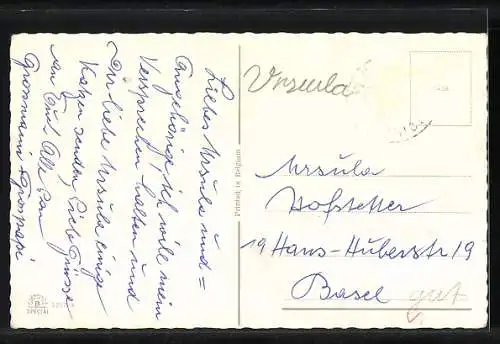 Liebes Ursula und =
Angehörige ich will mein
Versprechen halten und
Dir liebe Ursula einige
Katzen senden, Liebe Grüsse
an Euch Alle von
Grossmami + Grosspapi
Ursula
Ursula
Hofstetter
19 Hans-Huberstr 19
Basel gut
Printed in Belgium
SPECIAL